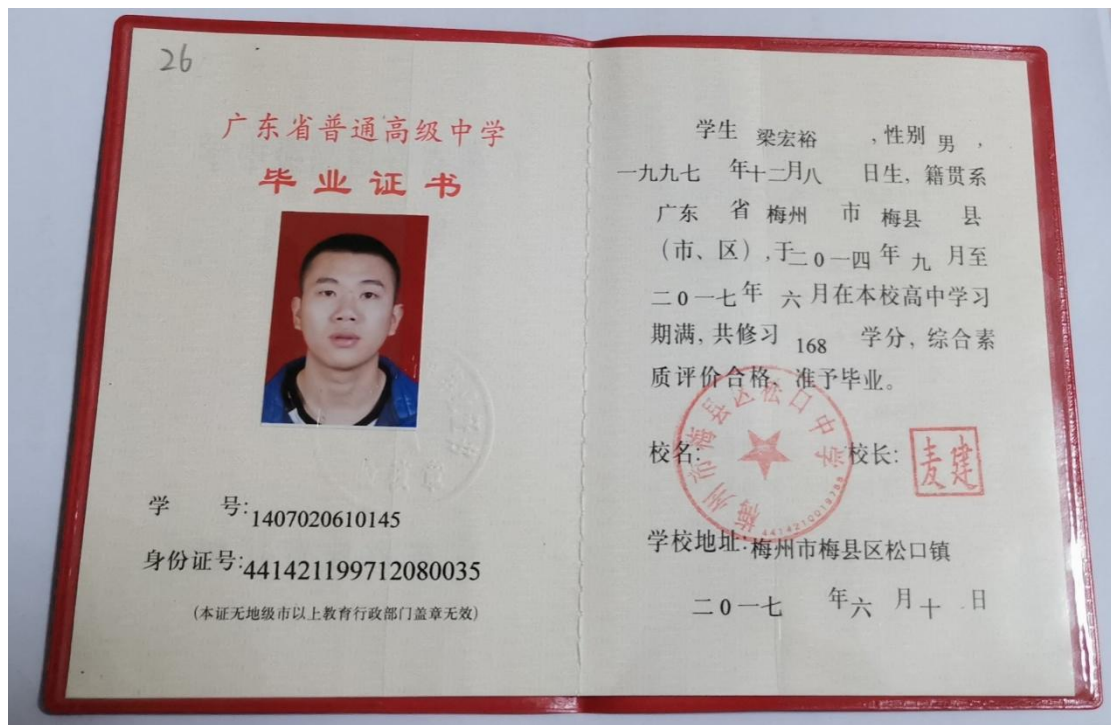 26
广东省普通高级中学
毕业证书
学 号:1407020610145
身份证号:441421199712080035
(本证无地级市以上教育行政部门盖章无效)
学生 梁宏裕 ,性别 男 ,
一九九七 年十二月八 日生, 籍贯系
广东 省 梅州 市 梅县 县
(市、区) ,于二0一四 年 九 月至
二0一七年 六 月在本校高中学习
期满, 共修习 168 学分, 综合素
质评价合格、准予毕业。
校名: 校长: 麦建
梅州市梅县区松口中学
学校地址:梅州市梅县区松口镇
二0一七 年六 月十 日